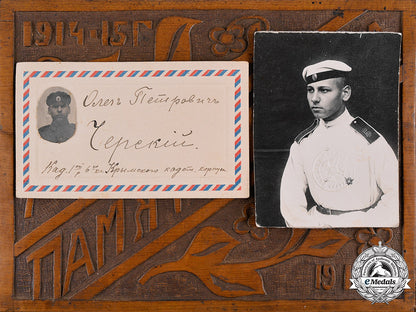 1914-15Г
Олегъ Петровичъ
Черскій.
Кад. 1й, 6й Крымского кадет. корпуса
ПАМЯТ
191
eMedals